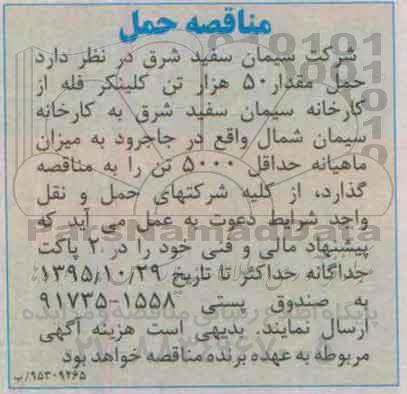 مناقصه حمل
شرکت سیمان سفید شرق در نظر دارد
حمل مقدار ۵۰ هزار تن کلینکر فله از
کارخانه سیمان سفید شرق به کارخانه
سیمان شمال واقع در جاجرود به میزان
ماهیانه حداقل ۵۰۰۰ تن را به مناقصه
گذارد، از کلیه شرکتهای حمل و نقل
واجد شرایط دعوت به عمل می آید که
پیشنهاد مالی و فنی خود را در ۲ پاکت
جداگانه حداکثر تا تاریخ ۱۳۹۵/۱۰/۲۹
به صندوق پستی ۱۵۵۸-۹۱۷۳۵
ارسال نمایند. بدیهی است هزینه آگهی
مربوطه به عهده برنده مناقصه خواهد بود
۹۵۳۰۹۲۶۵/پ
ParsNamadData